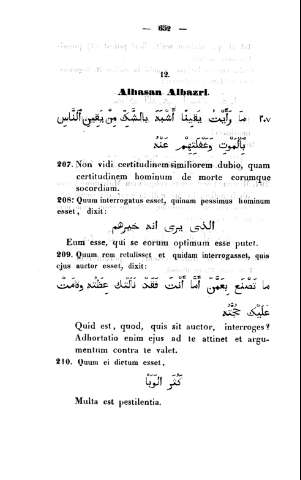 — 652 —
12.
Alhasan Albazri.
٢٠٧ مَا رَأَيْتُ يَقِينًا أَشْبَهَ بِالشَّكِّ مِنْ يَقِينِ ٱلنَّاسِ
بِالْمَوْتِ وَغَفْلَتِهِمْ عَنْهُ
207. Non vidi certitudinem similiorem dubio, quam
certitudinem hominum de morte eorumque
socordiam.
208. Quum interrogatus esset, quinam pessimus hominum
esset, dixit:
الذى يرى انه خيرهم
Eum esse, qui se eorum optimum esse putet.
209. Quum rem retulisset et quidam interrogasset, quis
ejus auctor esset, dixit:
مَا تَصْنَع بِعَمَّنْ أَمَّا أَنْتَ فَقَدْ نَالَتْكَ عِظَتُه وقَامَتْ
عَلَيْكَ حُجَّتُه
Quid est, quod, quis sit auctor, interroges?
Adhortatio enim ejus ad te attinet et argu-
mentum contra te valet.
210. Quum ei dictum esset,
كَثُرَ الوَبَأ
Multa est pestilentia.